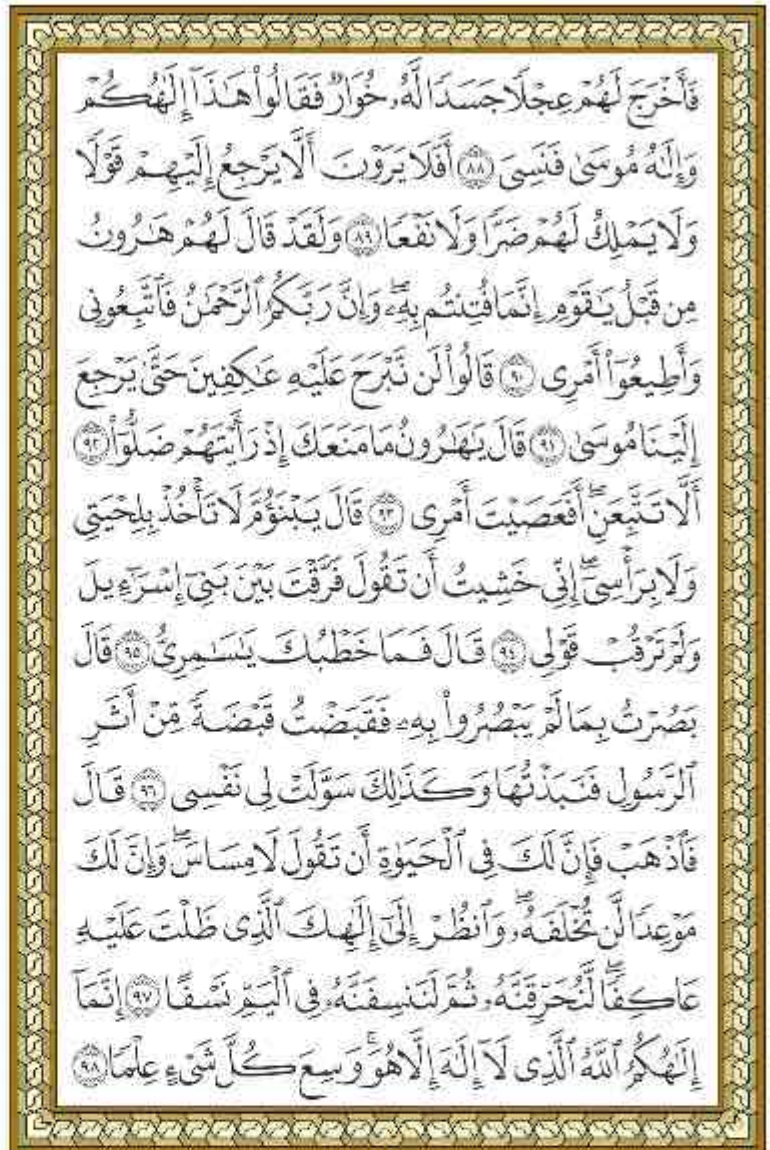 فَأَخْرَجَ لَهُمْ عِجْلًا جَسَدًا لَّهُۥ خُوَارٌ فَقَالُوا۟ هَـٰذَآ إِلَـٰهُكُمْ
وَإِلَـٰهُ مُوسَىٰ فَنَسِىَ ٨٨ أَفَلَا يَرَوْنَ أَلَّا يَرْجِعُ إِلَيْهِمْ قَوْلًا
وَلَا يَمْلِكُ لَهُمْ ضَرًّا وَلَا نَفْعًا ٨٩ وَلَقَدْ قَالَ لَهُمْ هَـٰرُونُ
مِن قَبْلُ يَـٰقَوْمِ إِنَّمَا فُتِنتُم بِهِۦ ۖ وَإِنَّ رَبَّكُمُ ٱلرَّحْمَـٰنُ فَٱتَّبِعُونِى
وَأَطِيعُوٓا۟ أَمْرِى ٩٠ قَالُوا۟ لَن نَّبْرَحَ عَلَيْهِ عَـٰكِفِينَ حَتَّىٰ يَرْجِعَ
إِلَيْنَا مُوسَىٰ ٩١ قَالَ يَـٰهَـٰرُونُ مَا مَنَعَكَ إِذْ رَأَيْتَهُمْ ضَلُّوٓا۟ ٩٢
أَلَّا تَتَّبِعَنِ ۖ أَفَعَصَيْتَ أَمْرِى ٩٣ قَالَ يَبْنَؤُمَّ لَا تَأْخُذْ بِلِحْيَتِى
وَلَا بِرَأْسِىٓ ۖ إِنِّى خَشِيتُ أَن تَقُولَ فَرَّقْتَ بَيْنَ بَنِىٓ إِسْرَٰٓءِيلَ
وَلَمْ تَرْقُبْ قَوْلِى ٩٤ قَالَ فَمَا خَطْبُكَ يَـٰسَـٰمِرِىُّ ٩٥ قَالَ
بَصُرْتُ بِمَا لَمْ يَبْصُرُوا۟ بِهِۦ فَقَبَضْتُ قَبْضَةً مِّنْ أَثَرِ
ٱلرَّسُولِ فَنَبَذْتُهَا وَكَذَٰلِكَ سَوَّلَتْ لِى نَفْسِى ٩٦ قَالَ
فَٱذْهَبْ فَإِنَّ لَكَ فِى ٱلْحَيَوٰةِ أَن تَقُولَ لَا مِسَاسَ ۖ وَإِنَّ لَكَ
مَوْعِدًا لَّن تُخْلَفَهُۥ ۖ وَٱنظُرْ إِلَىٰٓ إِلَـٰهِكَ ٱلَّذِى ظَلْتَ عَلَيْهِ
عَاكِفًا ۖ لَّنُحَرِّقَنَّهُۥ ثُمَّ لَنَنسِفَنَّهُۥ فِى ٱلْيَمِّ نَسْفًا ٩٧ إِنَّمَآ
إِلَـٰهُكُمُ ٱللَّهُ ٱلَّذِى لَآ إِلَـٰهَ إِلَّا هُوَ ۚ وَسِعَ كُلَّ شَىْءٍ عِلْمًا ٩٨